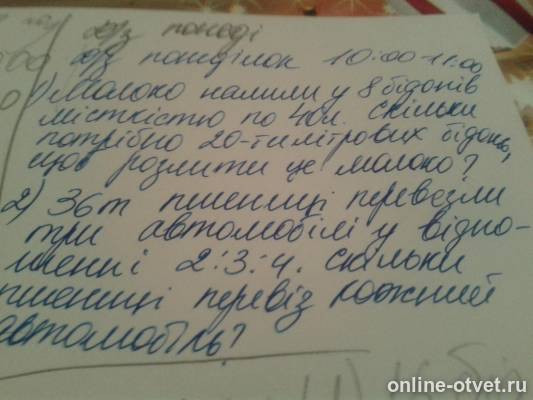 д/з понеді
д/з понеділок 10:00-11:00
1) Молоко налили у 8 бідонів
місткістю по 40л. скільки
потрібно 20-тилітрових бідонів,
щоб розлити це молоко?
2) 36т пшениці перевезли
три автомобілі у відно-
шенні 2:3:4. скільки
пшениці перевіз кожний
автомобіль?
online-otvet.ru